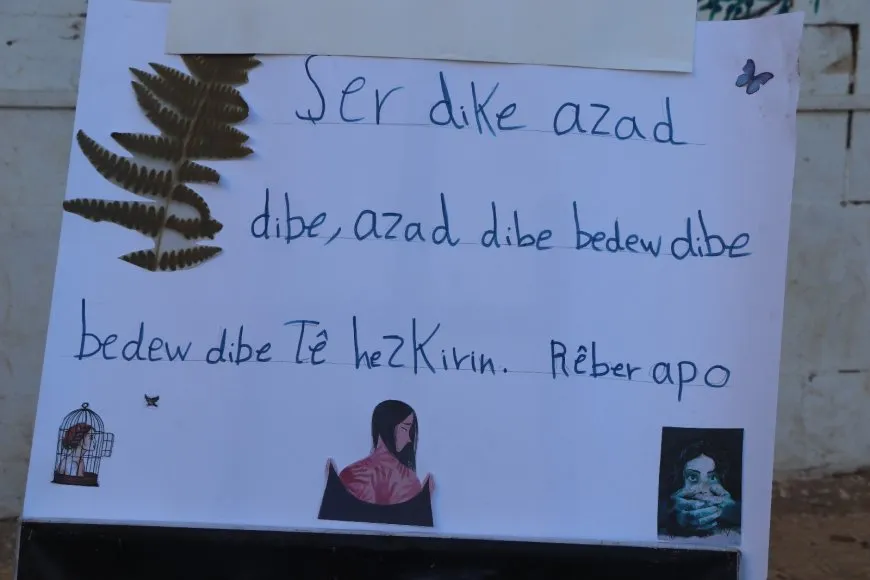 Şer dike azad
dibe, azad dibe bedew dibe
bedew dibe Tê hezKirin. Rêber apo